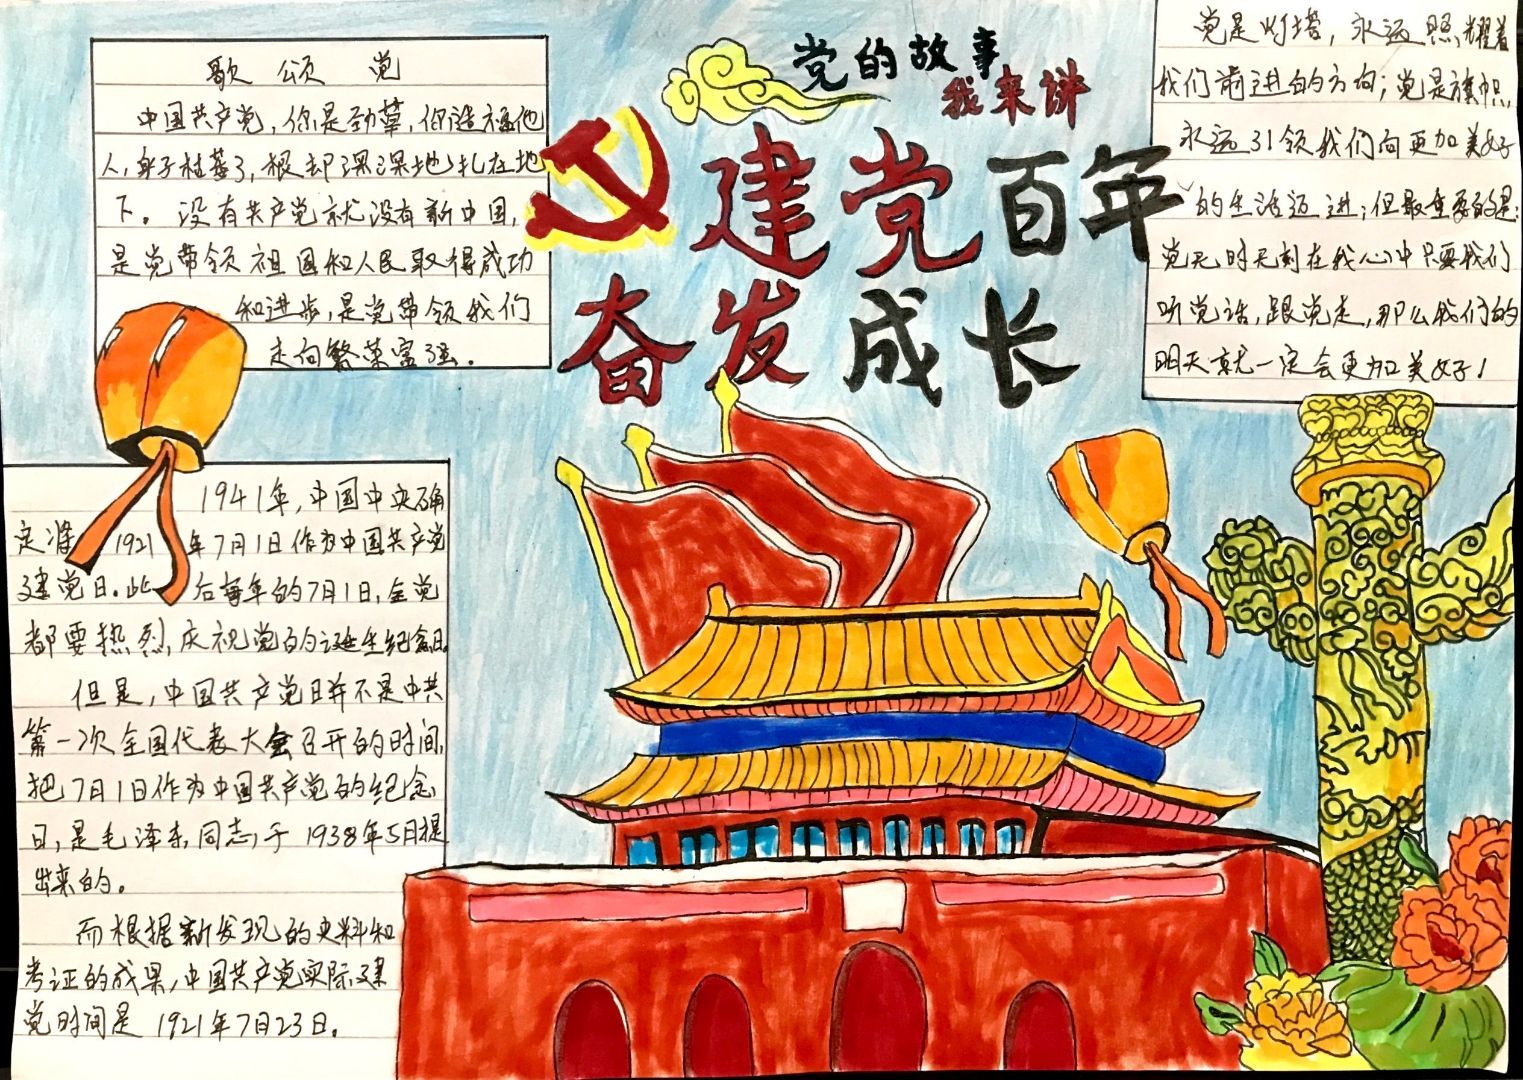 党的故事
我来讲
建党百年
奋发成长
歌颂党
中国共产党，你是劲草，你造福他
人，身子枯萎了，根却深深地扎在地
下。没有共产党就没有新中国，
是党带领祖国和人民取得成功
和进步，是党带领我们
走向繁荣富强。
党是灯塔，永远照耀着
我们前进的方向；党是旗帜，
永远引领我们向更加美好
的生活迈进；但最重要的是：
党无时无刻在我心中只要我们
听党话，跟党走，那么我们的
明天就一定会更加美好！
1941年，中国中央确
定 1921年7月1日作为中国共产党
建党日。此后每年的7月1日，全党
都要热烈庆祝党的诞生纪念日。
但是，中国共产党日并不是中共
第一次全国代表大会召开的时间，
把7月1日作为中国共产党的纪念
日，是毛泽东同志于1938年5月提
出来的。
而根据新发现的史料和
考证的成果，中国共产党实际建
党时间是1921年7月23日。